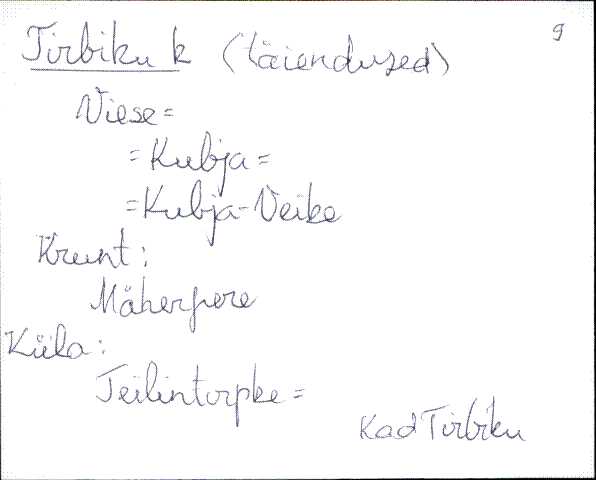 9
Tirbiku k (täiendused)
Viese =
= Kubja =
= Kubja-Veike
Krunt:
Mäherpere
Küla:
Teilintorpke =
Kad Tirbiku